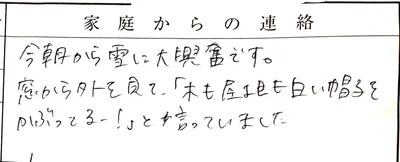 家庭からの連絡
今朝から雪に大興奮です。
窓から外を見て、「木も屋根も白い帽子を
かぶってるー！」と言っていました